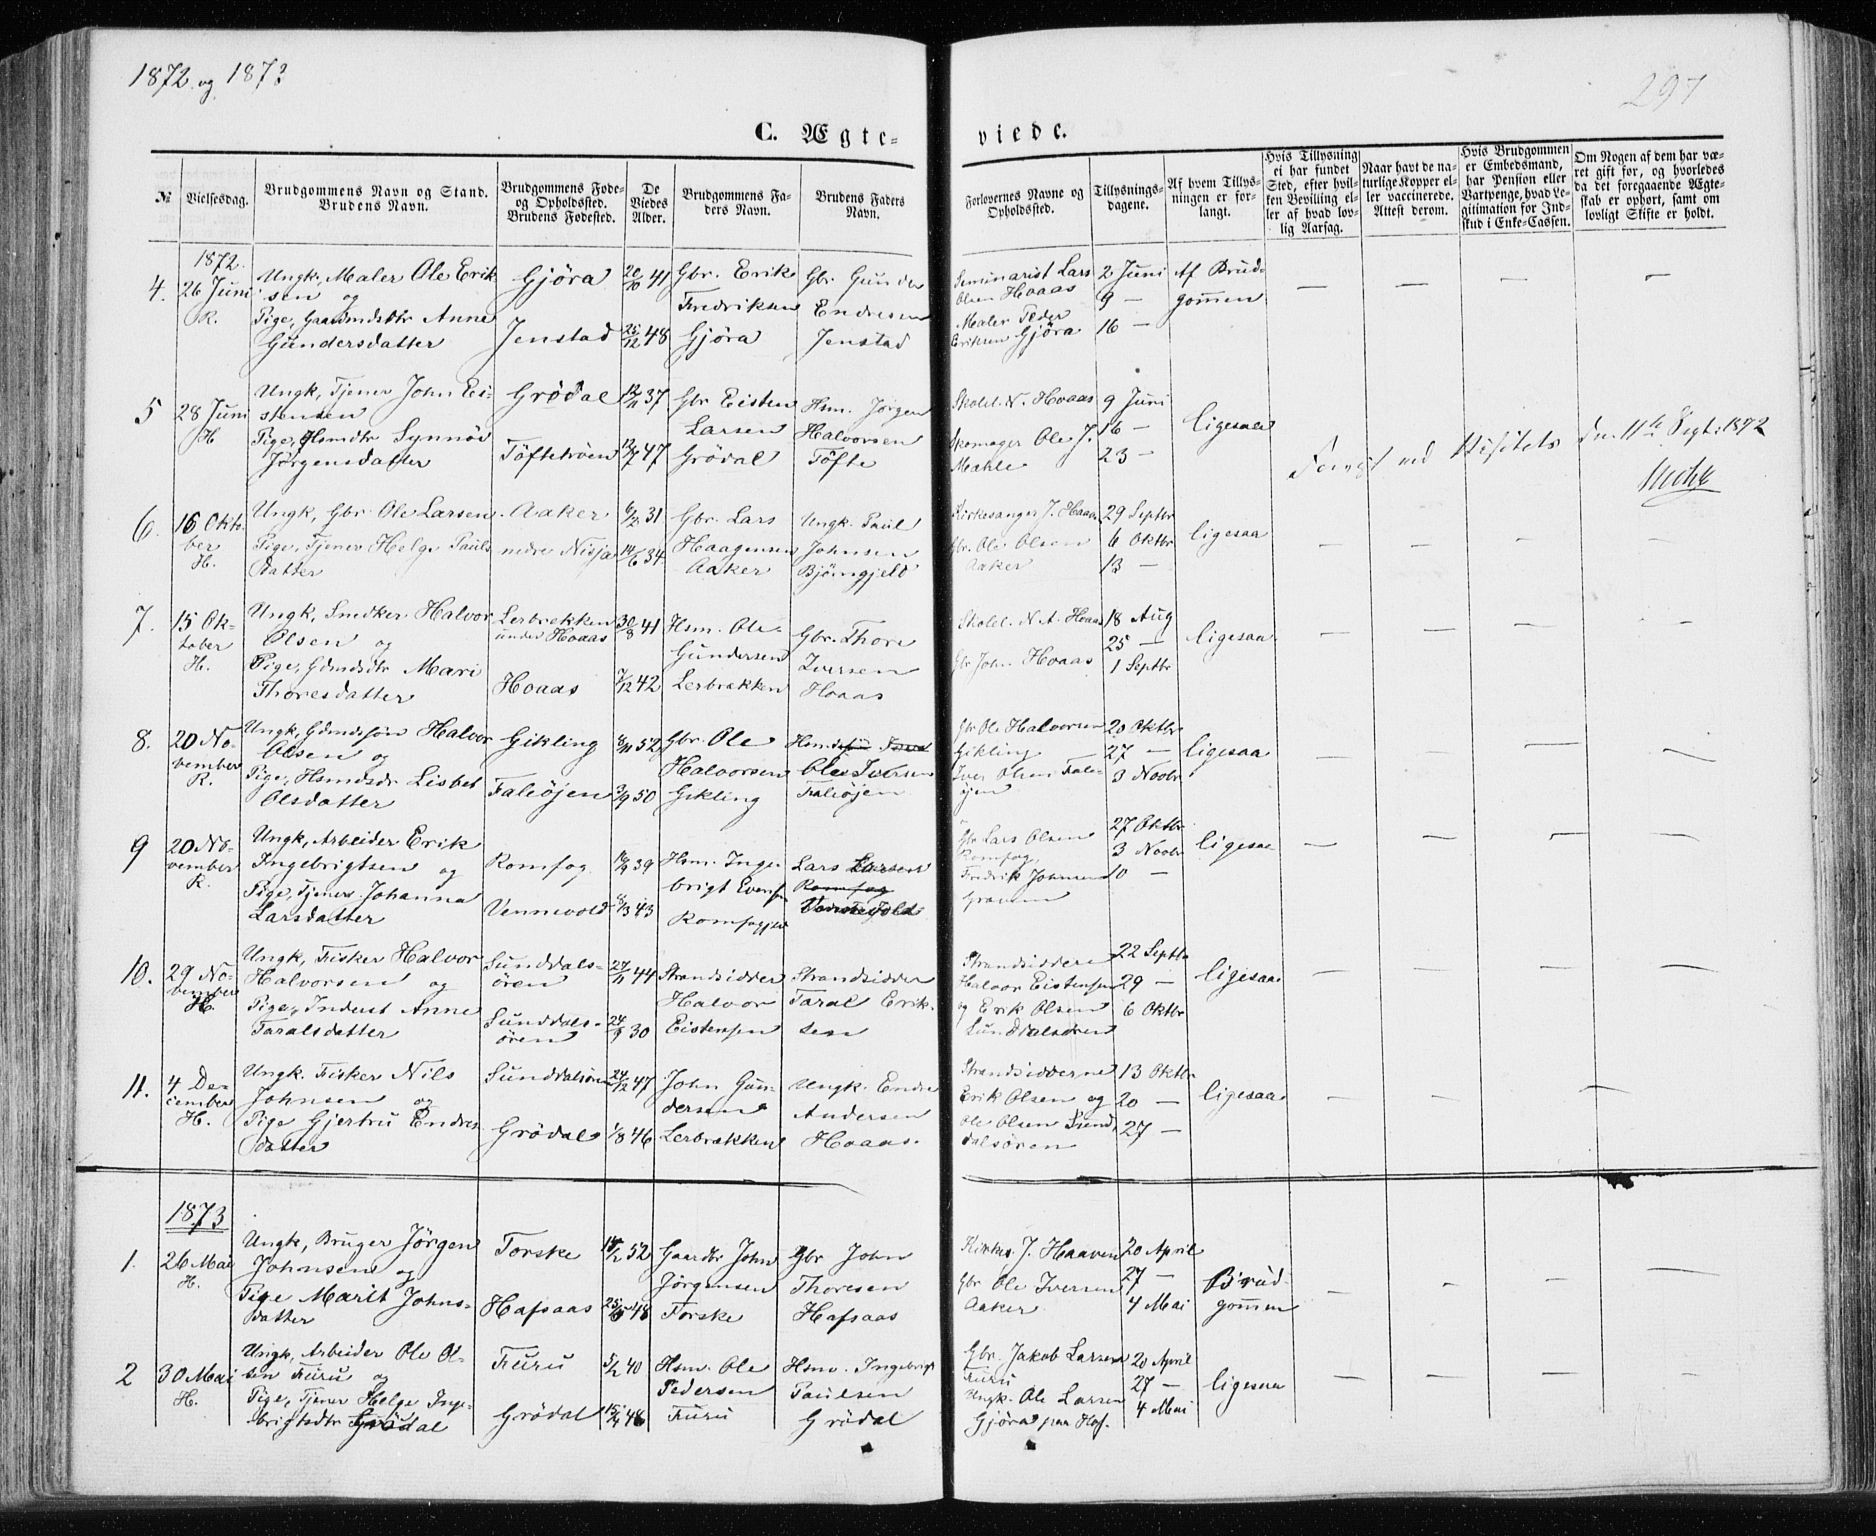 1872 og 1873
297
C. Ægte-
viede.
№
Vielsesdag.
Brudgommens Navn og Stand.
Brudens Navn.
Brudgommens Føde-
og Opholdssted.
Brudens Fødested.
De
Viedes
Alder.
Brudgommens Fa-
ders Navn.
Brudens Faders
Navn.
Forlovernes Navne og
Opholdssted.
Tillysnings-
dagene.
Af hvem Tillys-
ningen er for-
langt.
Hvis Tillysning
ei har fundet
Sted, efter hvil-
ken Bevilling el-
ler af hvad lov-
lig Aarsag.
Naar havt de na-
turlige Kopper el-
ler vaccinerede.
Attest derom.
Hvis Brudgommen
er Embedsmand,
har Pension eller
Vartpenge, hvad Le-
gitimation for Ind-
skud i Enke-Cassen.
Om Nogen af dem har væ-
ret gift før, og hvorledes
da det foregaaende Ægte-
skab er ophørt, samt om
lovligt Skifte er holdt.
1872.
4.
26 Juni
R.
Ungk, Maler Ole Erik
sen og
Pige, Gaardmdsdtr Anne
Gundersdatter
Gjöra
Jenstad
20/10 41
25/12 48
Gbr. Erik
Fredriksen
Gjöra
Gbr. Gunder
Endresen
Jenstad
Seminarist Lars
Olsen Hoaas
Maler Peder
Eriksen Gjöra
2 Juni
9 —
16 —
Af Brud-
gommen
— — — —
5
28 Juni
H
Ungk, Tjener John Ei-
stensen
Pige, Hsmdtr Synnöv
Jörgensdatter
Grödal
Töftetröen
12/11 37
12/7 47
Gbr Eisten
Larsen
Grödal
Hsm. Jörgen
Halvorsen
Töfte
Skolel. N. Hoaas
Skomager Ole J.
Mahle
9 Juni
16 —
23 —
ligesaa
ved Visitats den 11te Sept: 1872
6.
16 Okto-
ber
H.
Ungk, Gbr. Ole Larsen
Pige, Tjener Helge Pauls
datter
Aaker
nedre Nisja
31
34
Gbr. Lars
Haagensen
Aaker
Ungk. Paul
Johnsen
Björngjeld
Kirkesanger J. Haaven
Gbr. Ole Olsen
Aaker
29 Septbr
6 Oktbr
13 —
ligesaa
— — — —
7.
15 Ok-
tober
H.
Ungk, Snedker Halvor
Olsen og
Pige, Gdmdsdtr Mari
Thoresdatter
Lerbrækken
under Hoaas
Hoaas
30/8 41
42
Hsm. Ole
Gundersen
Lerbrækken
Gbr. Thore
Iversen
Hoaas
Skolel. N. A. Hoaas
Gbr John Hoaas
18 Aug
25 —
1 Septbr
ligesaa
— — — —
8.
20 No-
vember
R.
Ungk, Gdmdssön Halvor
Olsen og
Pige, Hsmdsdr Lisbet
Olsdatter
Gikling
Faleöjen
8/11 52
3/9 50
Gbr. Ole
Halvorsen
Gikling
Ole Iversen
Faleöjen
Gbr Ole Halvorsen
Gikling
Iver Olsen Fale-
öjen
20 Oktbr
27 —
3 Novbr
ligesaa
— — —
9
20 No-
vember
R.
Ungk, Arbeider Erik
Ingebrigtsen og
Pige, Tjener Johanna
Larsdatter
Romfog
Vennevold
39
8/3 43
Hsm. Inge-
brigt Evens
Lars Larsen
Romfog
Gbr Lars Olsen
Romfog,
Fredrik Johnsen
Graven
27 Oktbr
3 Novbr
10 —
ligesaa
— — — —
10.
29 No-
vember
H.
Ungk, Fisker Halvor
Halvorsen og
Pige, Inderst Anne
Taralsdatter
Sunddals-
ören
Sunddals-
ören
27/11 44
24/9 30
Strandsidder
Halvor
Eistensen
Strandsidder
Taral Erik-
sen
Strandsiddere
Halvor Eistensen
og Erik Olsen
Sunddalsören
22 Septbr
29 —
6 Oktbr
ligesaa
— — — —
11.
4 De-
cember
H.
Ungk. Fisker Nils
Johnsen og
Pige Gjertru Endres
datter
Sunddalsören
Grödal
24/12 47
1/8 46
John Gun-
dersen
Lerbrækken
Ungk. Endre
Andersen
Hoaas.
Strandsidderne
Erik Olsen og
Ole Olsen Sund
dalsören
13 Oktbr
20 —
27 —
ligesaa
— — — —
1873
1.
26 Mai
H.
Ungk, Bruger Jörgen
Johnsen og
Pige Marit Johns-
datter
Forske
Hafsaas
52
48
Gaardbr John
Jörgensen
Forske
Gbr John
Thoresen
Hafsaas
Kirkes. J. Haaven
Gbr Ole Iversen
Aaker
20 April
27 —
4 Mai
Brud-
gommen
— — — —
2
30 Mai
H.
Ungk, Arbeider Ole Ol-
sen Furu og
Pige, Tjener Helge Inge-
brigtsdtr Grödal
Furu
Grödal
5/2 40
15/4 48
Hsm. Ole
Pedersen
Furu
Hsm. Ingebrigt
Paulsen
Grödal
Gbr. Jakob Larsen
Furu
Ungk. Ole Larsen
Gjöra paa Hof.
20 April
27 —
4 Mai
ligesaa
— — — —